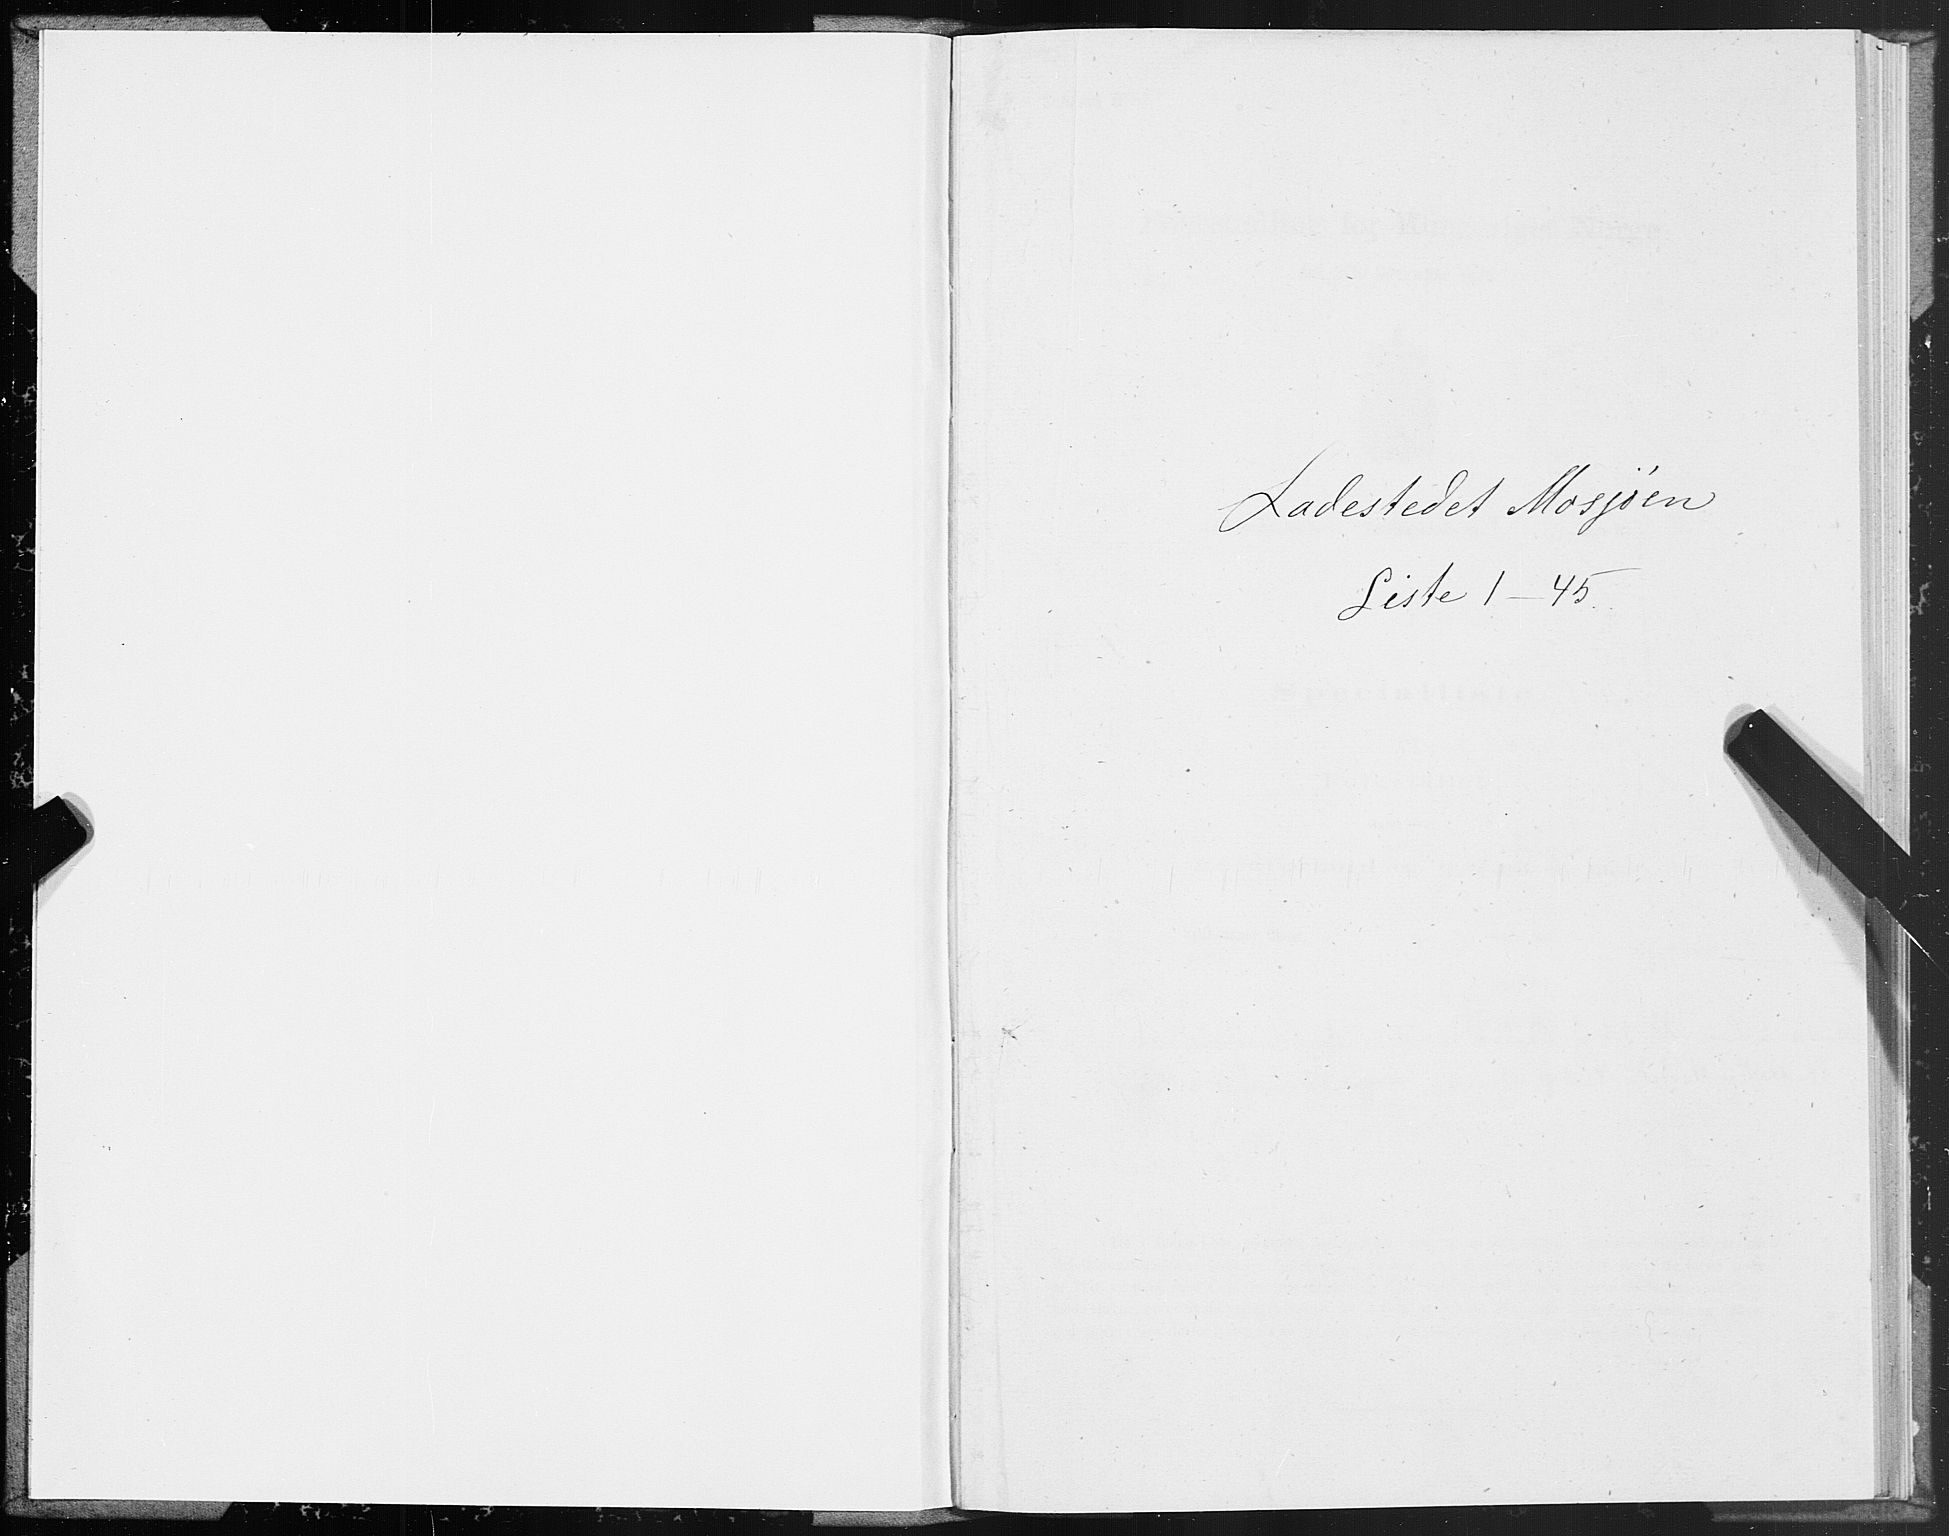 Ladestedet Mosjøen
Liste 1–45.